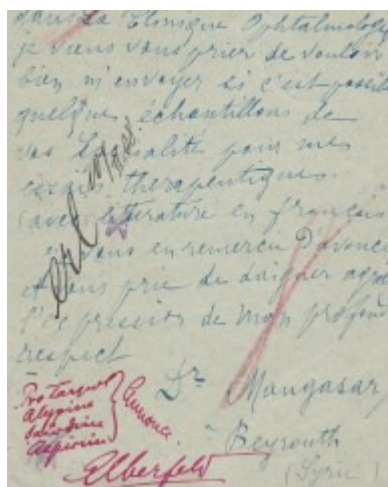 dans la Clinique Ophtalmolog
je viens vous prier de vouloir
bien m'envoyer si c'est possible
quelques échantillons de
vos spécialité pour mes
essais thérapeutiques.
(avec litterature en français
et vous en remerciu d'avance
et vous prie de daigner agré
l'expression de mon profond
respect
Dr Mangasar
Beyrouth
(Syrie)
Protargol
Alypine
Aspirin
Elberfeld